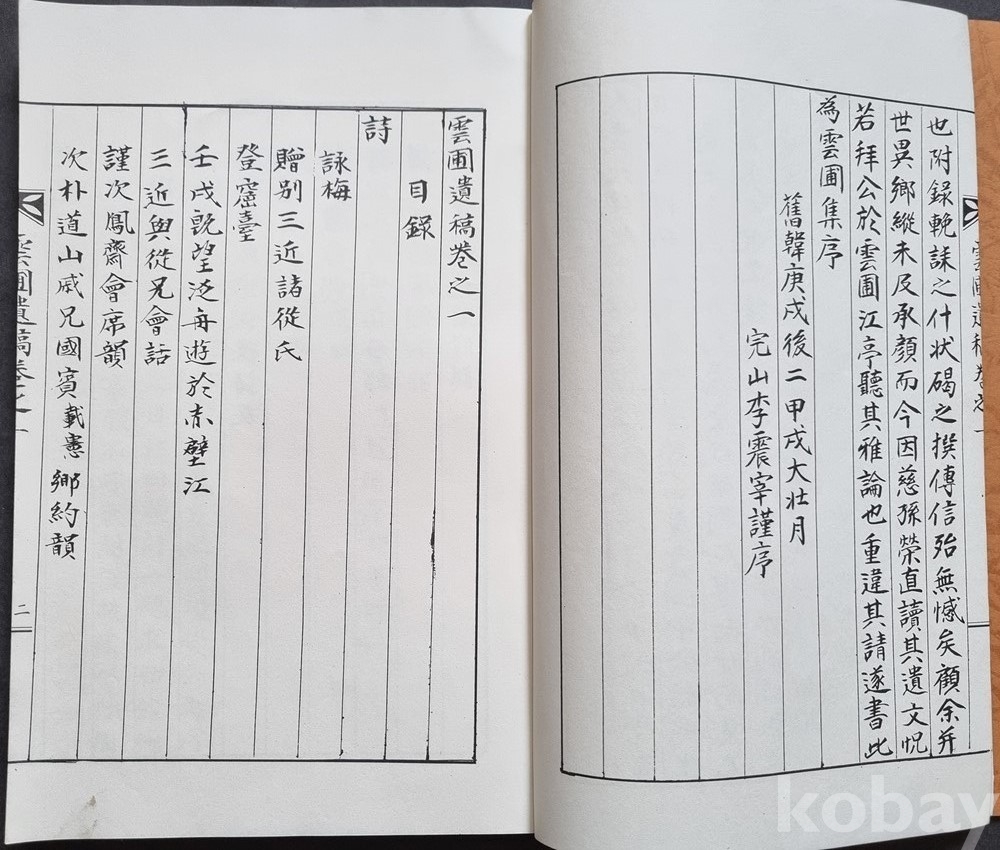 也附錄輓誄之什狀碣之撰傳信殆無憾矣顧余并
世異鄉縱未及承顏而今因慈孫榮直讀其遺文怳
若拜公於雲圃江亭聽其雅論也重違其請遂書此
為雲圃集序
舊韓庚戌後二甲戌大壯月
完山李震宰謹序
雲圃遺稿卷之一
雲圃遺稿卷之一
目錄
詩
詠梅
贈別三近諸從氏
登窟臺
壬戌旣望泛舟遊於赤壁江
三近與從兄會話
謹次鳳齋會席韻
次朴道山戚兄國賓載憲鄉約韻
雲圃遺稿卷之一
二
kobay